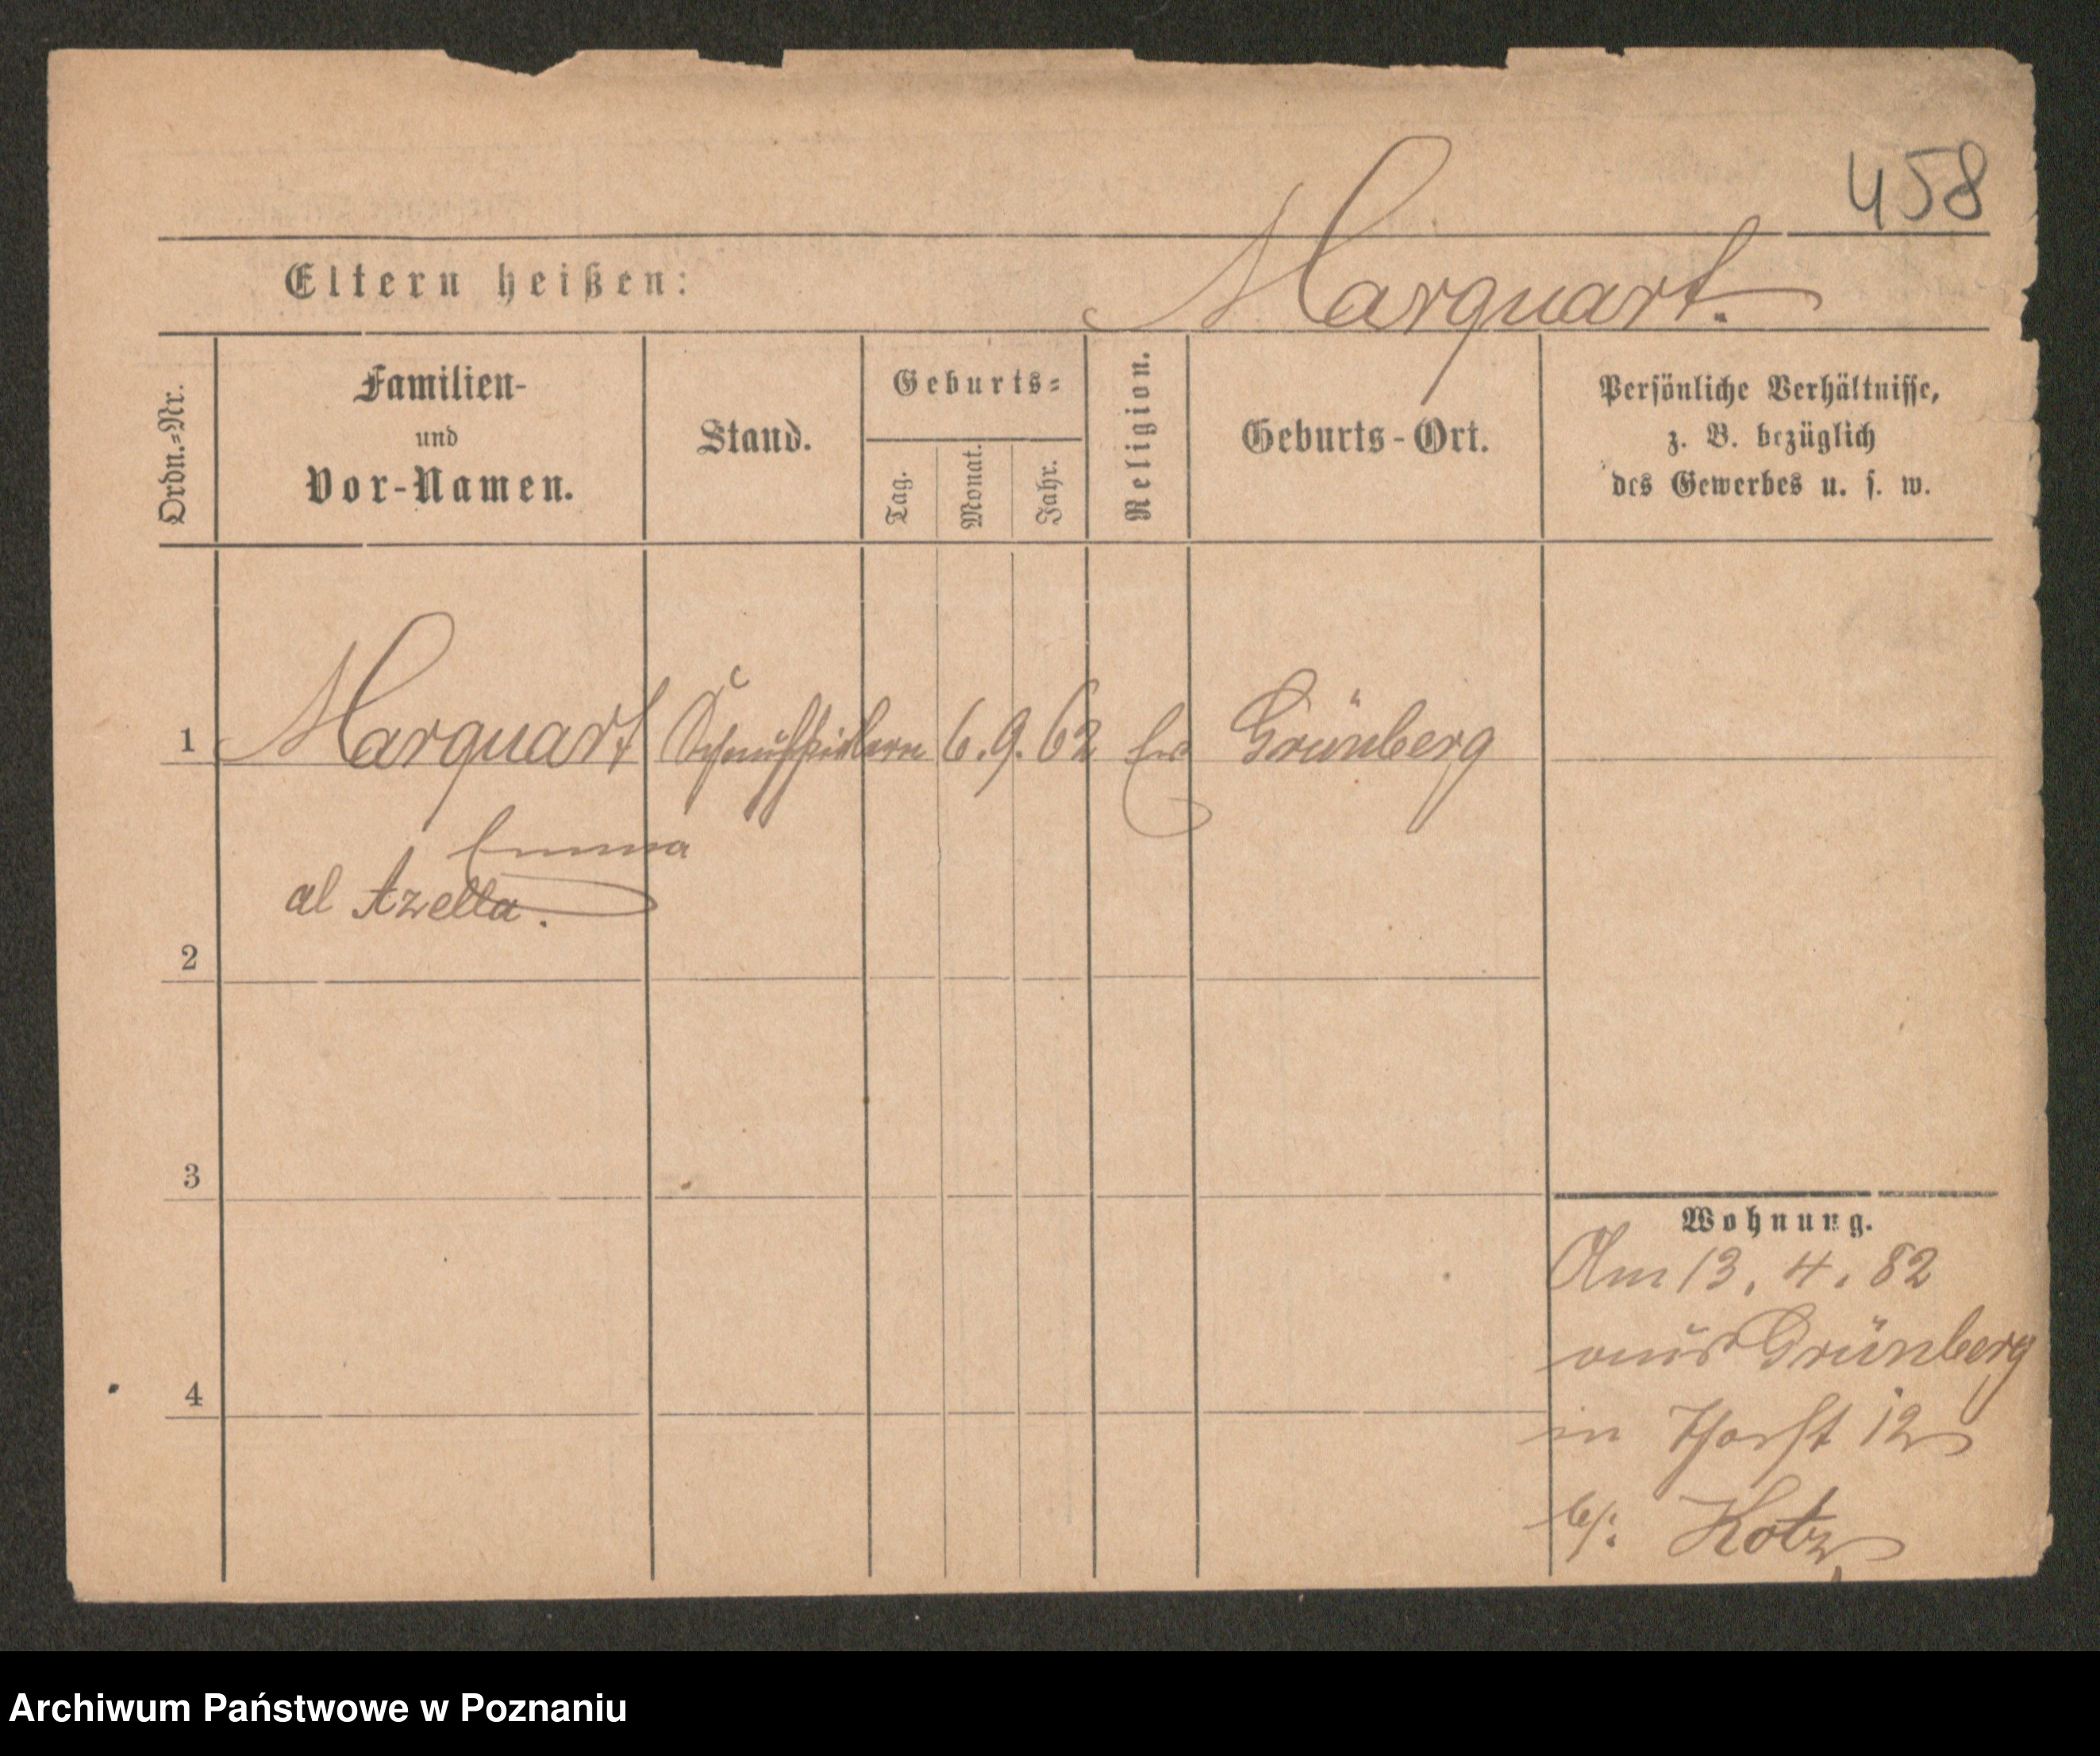 458
Eltern heißen: Marquart.
Ordn.=Nr.
Familien-
und
Vor-Namen.
Stand.
Geburts=
Tag.
Monat.
Jahr.
Religion.
Geburts-Ort.
Persönliche Verhältnisse,
z. B. bezüglich
des Gewerbes u. s. w.
1 Marquart Schauspielerin 6. 9. 62 Grünberg
Emma
al Azella.
2
3
4
Wohnung.
Am 13. 4. 82
aus Grünberg
in 12
b/: Kotz
Archiwum Państwowe w Poznaniu